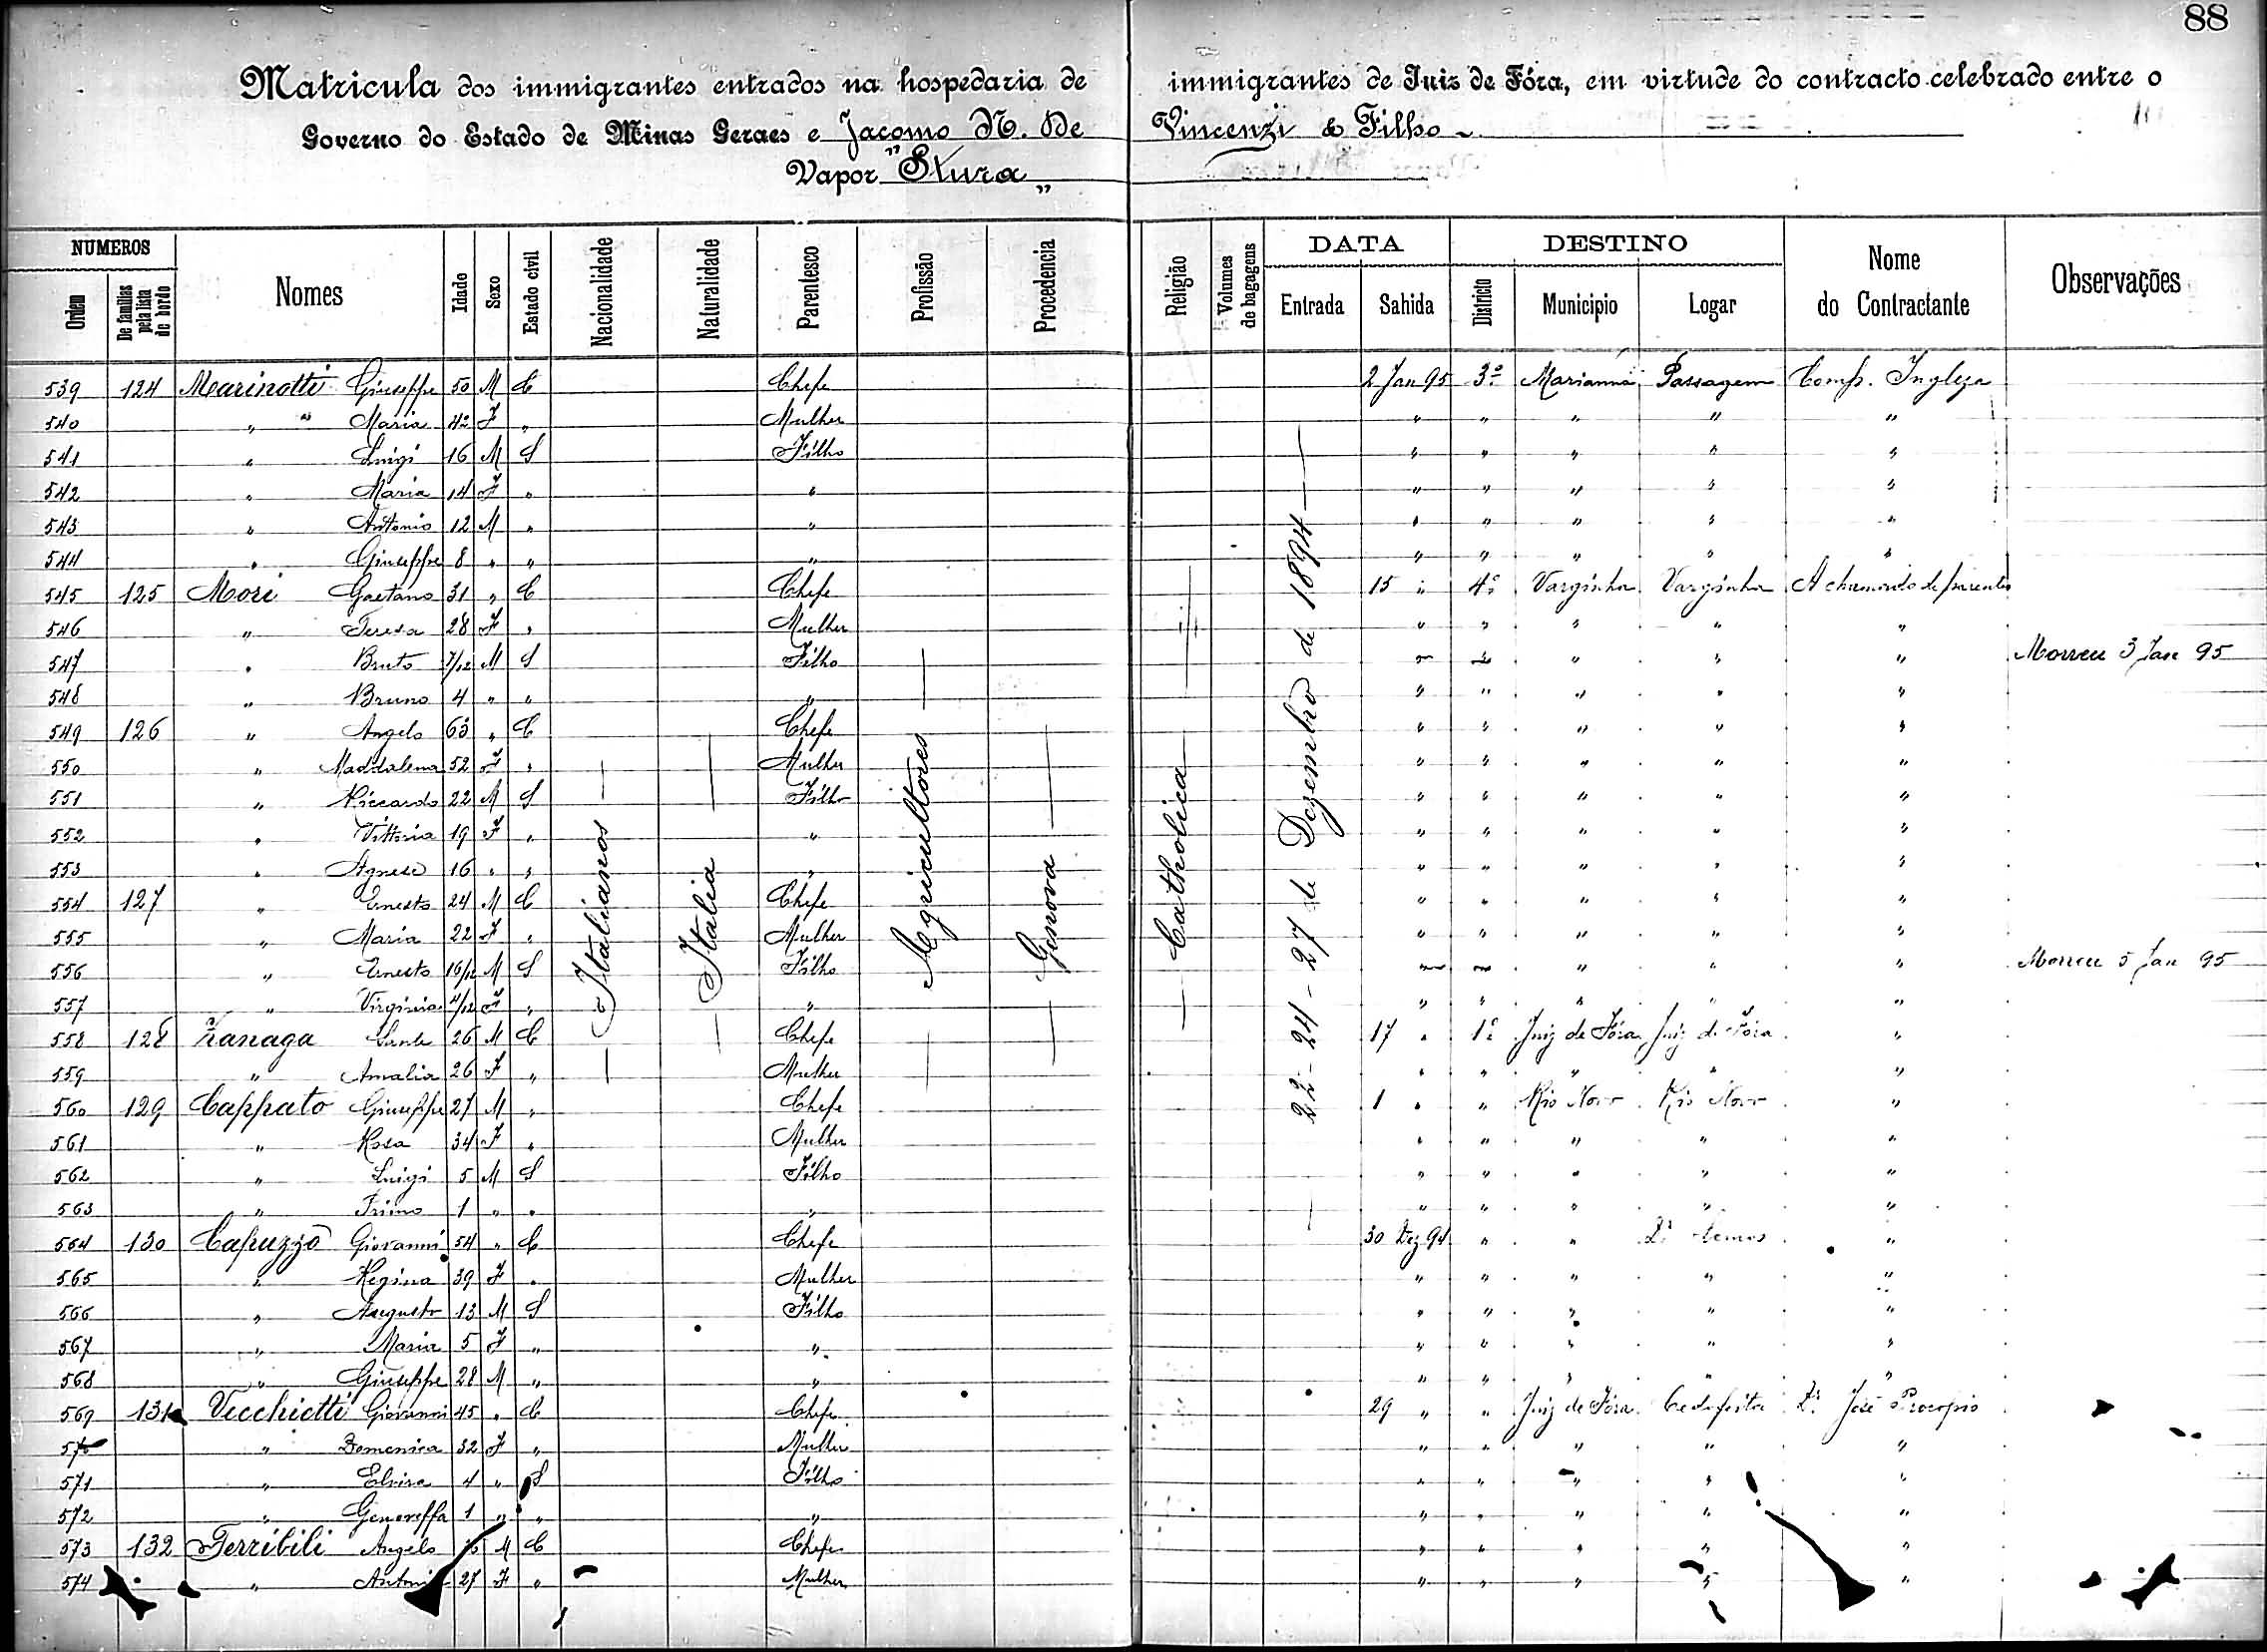 88
Matricula dos immigrantes entrados na hospedaria de immigrantes de Juiz de Fóra, em virtude do contracto celebrado entre o
Governo do Estado de Minas Geraes e Jacomo N. de Vincenzi & Filho
Vapor "Stura"
NUMEROS DATA DESTINO
Ordem De familias pela lista de bordo Nomes Idade Sexo Estado civil Nacionalidade Naturalidade Parentesco Profissão Procedencia Religião Volumes de bagagens Entrada Sahida Districto Municipio Logar Nome do Contractante Observações
Italianos
Italia
Agricultores
Genova
Catholica
22-24-27 de Dezembro de 1894
539 124 Marinotti Giuseppe 50 M C Chefe 2 Jan 95 3º Marianna Passagem Comp. Ingleza
540 " " Maria 42 F " Mulher " " " " "
541 " Luigi 16 M S Filho " " " " "
542 " Maria 14 F " " " " " " "
543 " Antonio 12 M " " " " " " "
544 " Giuseppe 8 " " " " " " " "
545 125 Mori Gaetano 31 " C Chefe 15 " 4º Varginha Varginha A chamado de parentes
546 " Teresa 28 F " Mulher " " " " "
547 " Bruto 7/12 M S Filho " " " " " Morreu 3 Jan 95
548 " Bruno 4 " " " " " " " "
549 126 " Angelo 63 " C Chefe " " " " "
550 " Maddalena 52 F " Mulher " " " " "
551 " Riccardo 22 M S Filho " " " " "
552 " Vittoria 19 F " " " " " " "
553 " Agnese 16 " " " " " " " "
554 127 " Ernesto 24 M C Chefe " " " " "
555 " Maria 22 F " Mulher " " " " "
556 " Ernesto 16/12 M S Filho " " " " " Morreu 5 Jan 95
557 " Virginia 4/12 F " " " " " " "
558 128 Zanaga Sante 26 M C Chefe 17 " 1º Juiz de Fóra Juiz de Fóra "
559 " Amalia 26 F " Mulher " " " " "
560 129 Cappato Giuseppe 27 M " Chefe 1 " " Rio Novo Rio Novo "
561 " Rosa 34 F " Mulher " " " " "
562 " Luigi 5 M S Filho " " " " "
563 " Primo 1 " " " " " " " "
564 130 Capuzzo Giovanni 54 " C Chefe 30 Dez 94 " " Dr Lemos "
565 " Regina 39 F " Mulher " " " " "
566 " Augusto 13 M S Filho " " " " "
567 " Maria 5 F " " " " " " "
568 " Giuseppe 28 M " " " " " " "
569 131 Vecchietti Giovanni 45 " C Chefe 29 " " Juiz de Fóra Cedofeita Dr José Procopio
570 " Domenica 32 F " Mulher " " " " "
571 " Elvira 4 " S Filho " " " " "
572 " Genoveffa 1 " " " " " " " "
573 132 Terribili Angelo M C Chefe " " " " "
574 " 27 F " Mulher " " " " "